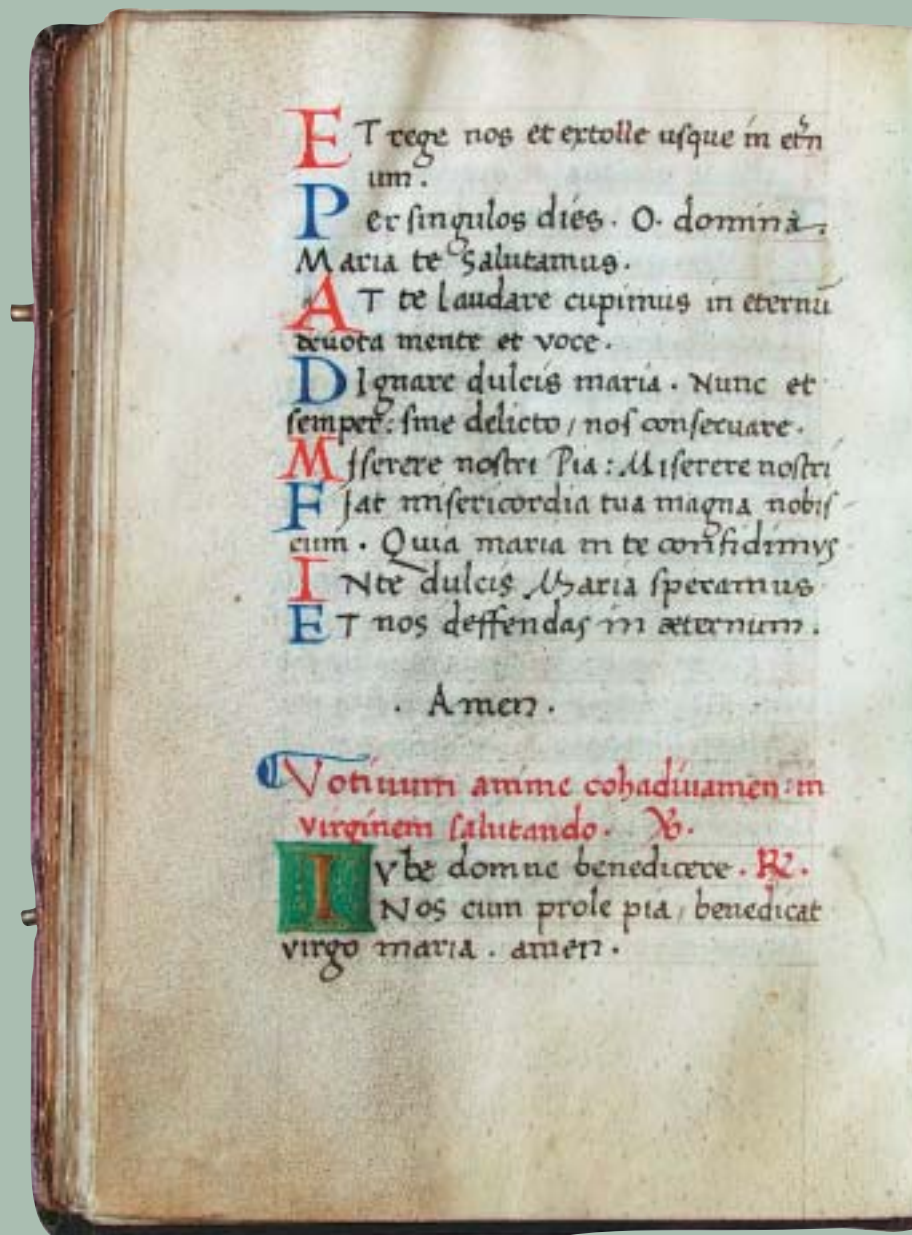 ET rege nos et extolle usque in etn
um.
Per singulos dies. O. domina.
Maria te Salutamus.
AT te laudare cupimus in eternū
deuota mente et voce.
DIgnare dulcis maria. Nunc et
semper: sine delicto / nos conseruare.
Miserere nostri Pia: Miserere nostri
Fiat misericordia tua magna nobis-
cum. Quia maria in te confidimus
INte dulcis Maria speramus
ET nos deffendas in æternum.
. Amen.
Votiuum anime cohadiuuamen: in
virginem salutando. ℣.
Iube domne benedicere. ℟.
Nos cum prole pia, benedicat
virgo maria. amen.